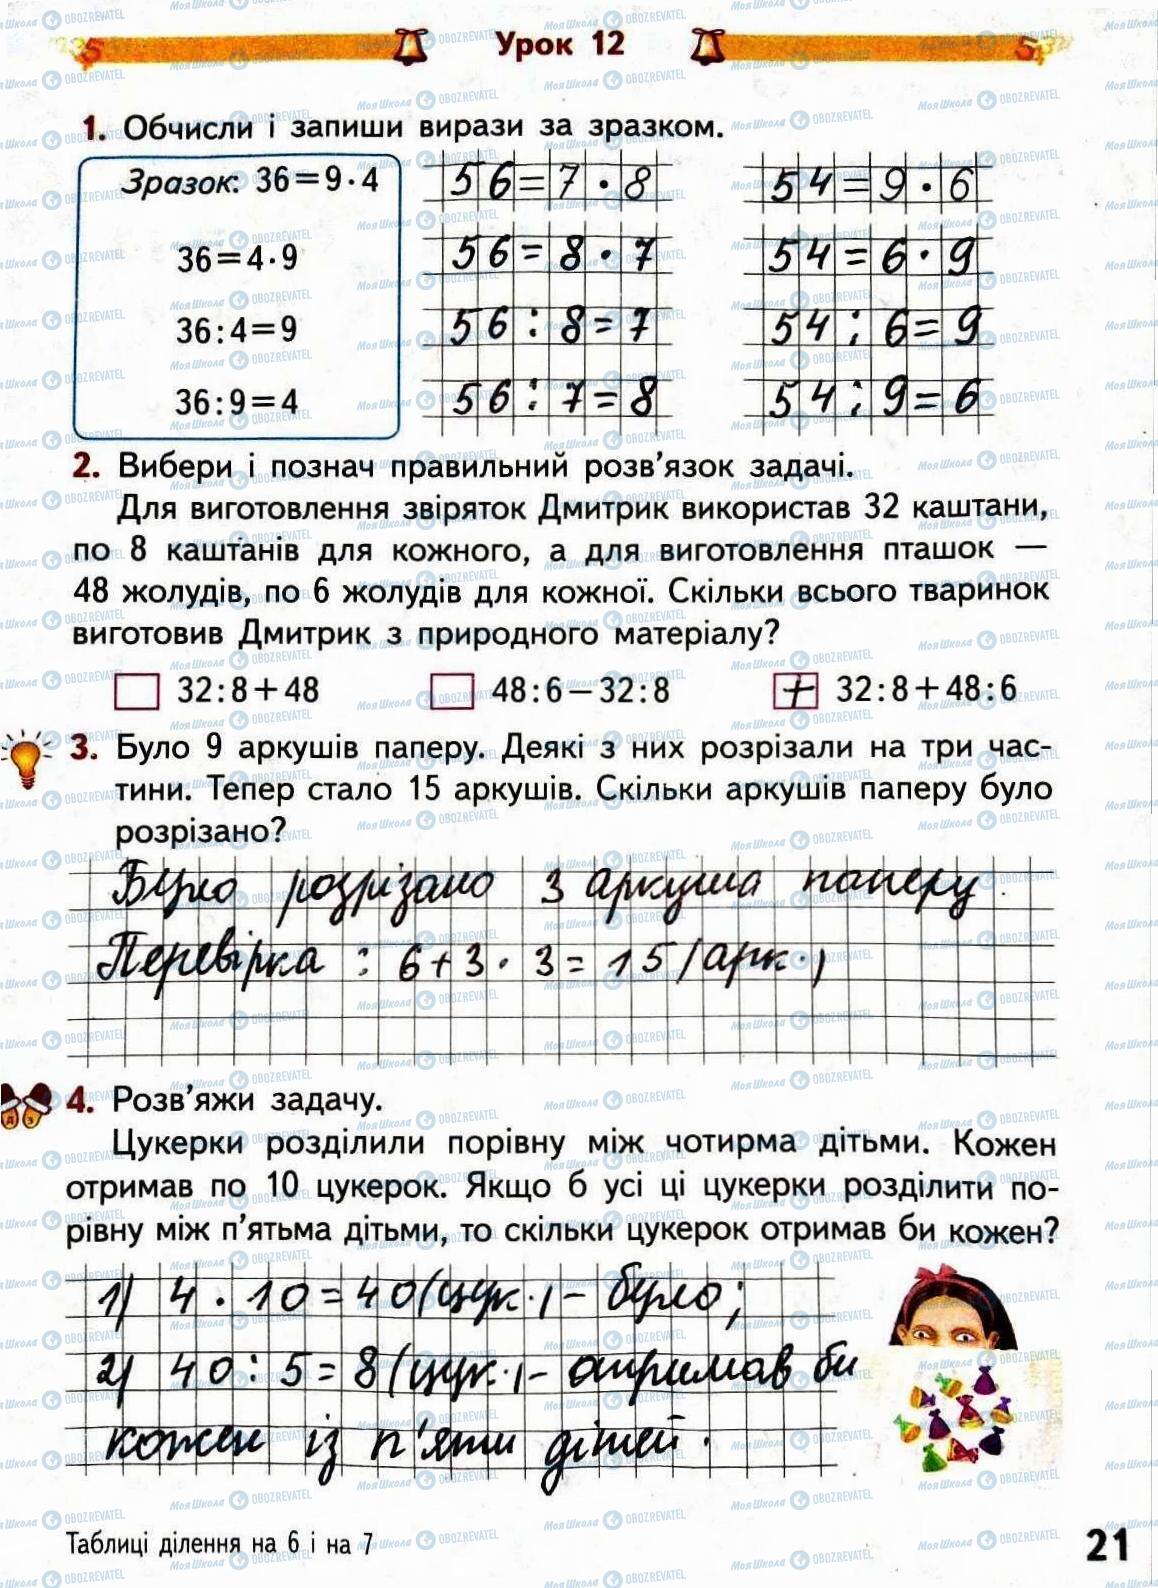 Урок 12
1. Обчисли і запиши вирази за зразком.
Зразок: 36=9·4
36=4·9
36:4=9
36:9=4
56=7·8
56=8·7
56:8=7
56:7=8
54=9·6
54=6·9
54:6=9
54:9=6
2. Вибери і познач правильний розв'язок задачі.
Для виготовлення звіряток Дмитрик використав 32 каштани,
по 8 каштанів для кожного, а для виготовлення пташок —
48 жолудів, по 6 жолудів для кожної. Скільки всього тваринок
виготовив Дмитрик з природного матеріалу?
32:8+48
48:6−32:8
+ 32:8+48:6
3. Було 9 аркушів паперу. Деякі з них розрізали на три час-
тини. Тепер стало 15 аркушів. Скільки аркушів паперу було
розрізано?
Було розрізано 3 аркуша паперу.
Перевірка: 6+3·3=15(арк.)
4. Розв'яжи задачу.
Цукерки розділили порівну між чотирма дітьми. Кожен
отримав по 10 цукерок. Якщо б усі ці цукерки розділити по-
рівну між п'ятьма дітьми, то скільки цукерок отримав би кожен?
1) 4·10=40(цук.)- було;
2) 40:5=8(цук.)- отримав би
кожен із п'яти дітей.
Таблиці ділення на 6 і на 7
21
МояШкола OBOZREVATEL